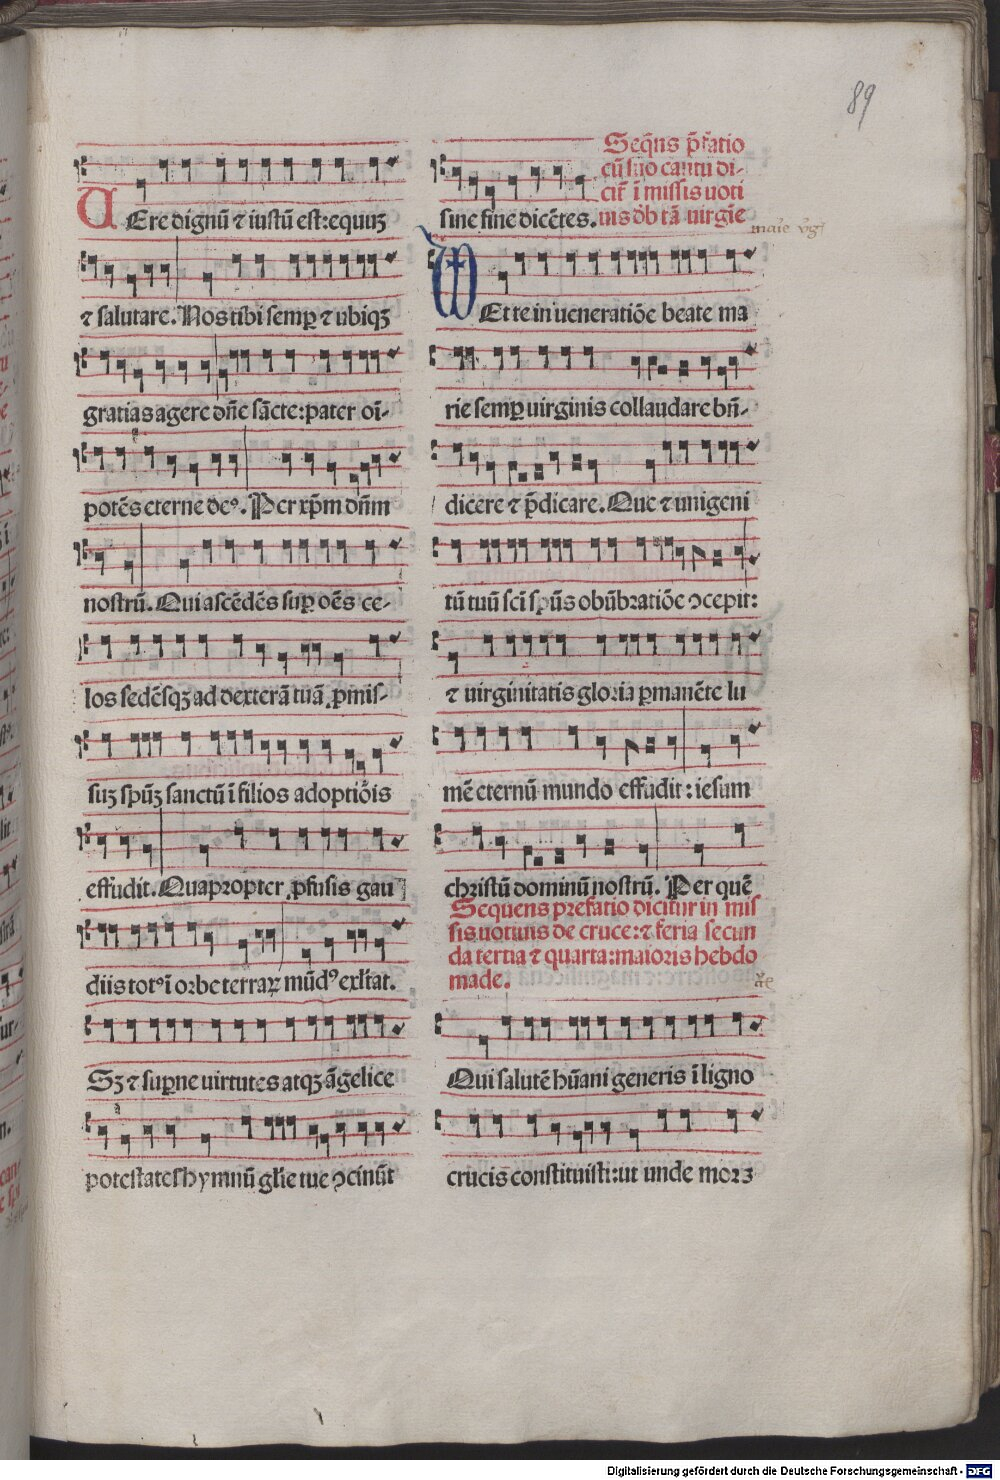 89
UEre dignū ⁊ iustū est: equuʒ
⁊ salutare. Nos tibi semꝑ ⁊ ubiqʒ
gratias agere dn̄e sācte: pater oī-
potēs eterne deꝰ. Per xp̄m dn̄m
nostrū. Qui ascēdēs suꝑ oēs ce-
los sedēsqʒ ad dexterā tuā ꝓmis-
suʒ spūʒ sanctū ī filios adoptiōis
effudit. Quapropter ꝓfusis gau
diis totꝰ ī orbe terraꝝ mūdꝰ exl̄tat.
Sʒ ⁊ suꝑne uirtutes atqʒ āgelice
potestates hymnū gl̄ie tue ↄcinūt
sine fine dicētes.
Seqn̄s p̄fatio
cū suo cantu di-
cit̄ ī missis uoti
uis d̄b tā uirgīe
marie v̄gĩ
Et te in ueneratiōe beate ma
rie semꝑ uirginis collaudare bn̄-
dicere ⁊ p̄dicare. Que ⁊ unigeni
tū tuū sc̄i sp̄ūs obūbratiōe ↄcepit:
⁊ uirginitatis gloria ꝑmanēte lu
mē eternū mundo effudit: iesum
christū dominū nostrū. Per quē
Sequens prefatio dicitur in mis
sis uotiuis de cruce: ⁊ feria secun
da tertia ⁊ quarta: maioris hebdo
made.
Qui salutē hūani generis ī ligno
crucis constituisti: ut unde morʒ
Digitalisierung gefördert durch die Deutsche Forschungsgemeinschaft - DFG